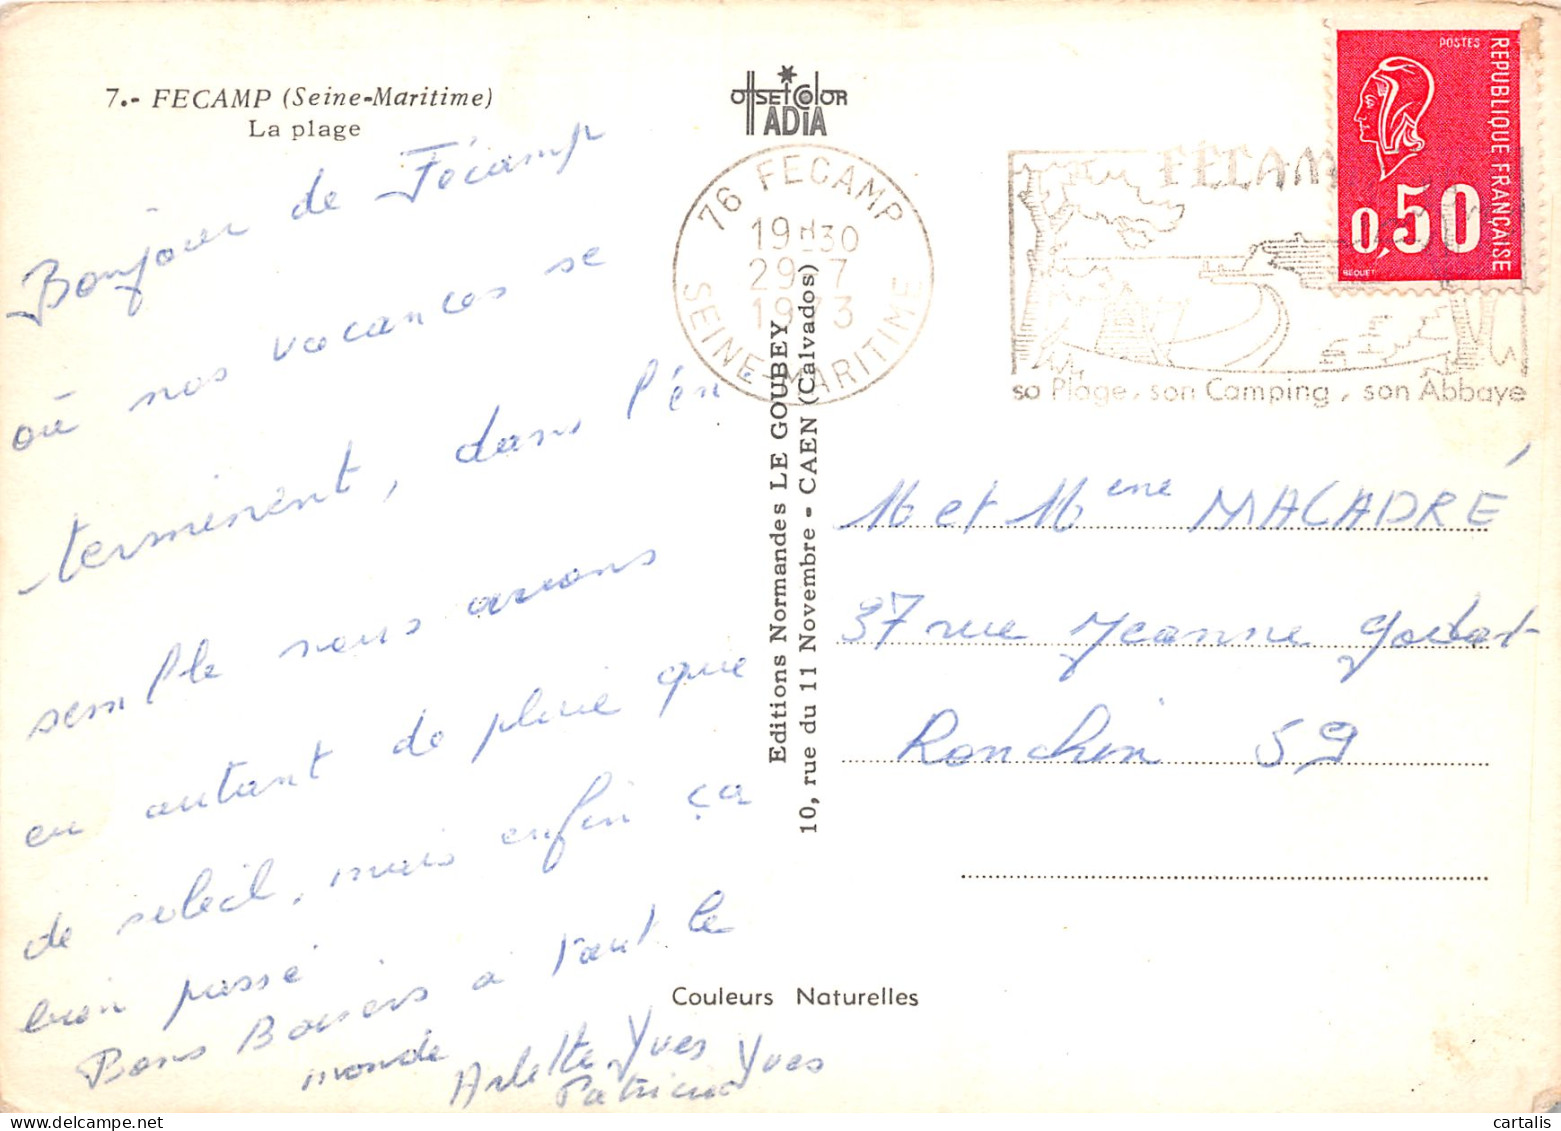 7.- FECAMP (Seine-Maritime)
La plage
Bonjour de Fécamp
où nos vacances se
terminent, dans l'en
semble nous avons
eu autant de pluie que
de soleil, mais enfin ça
bien passé
Bons Baisers à tout le
monde
Arlette Yves Yves
Patricia
OFFSET COLOR
ADIA
76 FECAMP
19H30
29-7
1973
SEINE-MARITIME
Editions Normandes LE GOUBEY
10, rue du 11 Novembre - CAEN (Calvados)
FÉCAM
sa Plage, son Camping, son Abbaye
POSTES
REPUBLIQUE FRANÇAISE
0,50
BEQUET
M et Mme MACADRÉ
37 rue Jeanne Godart
Ronchin 59
Couleurs Naturelles
cartalis